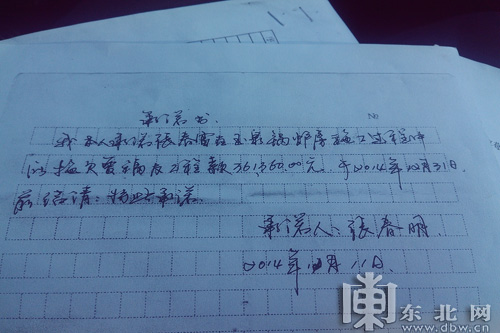 承诺书
No
我本人承诺张春富在玉泉锅炉房施工过程中
的拖欠费稿及工程款361560.00元,于2014年12月31日
前结清:特此承诺.
承诺人:张春明.
2014年12月11日.
东北网
www.dbw.cn